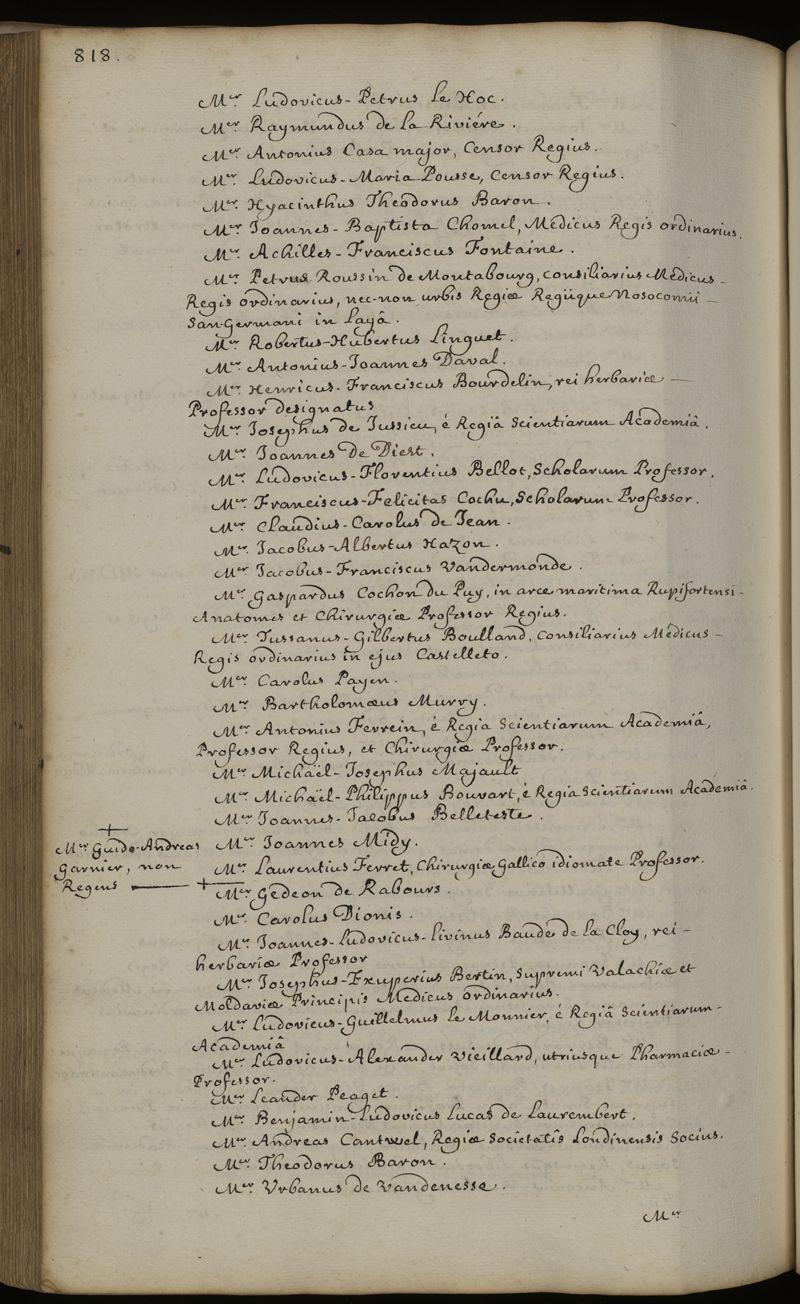 818.
Mer Ludovicus-Petrus Le Hoc.
Mer Raymundus de la Riviére.
Mer Antonius Casa major, Censor Regius.
Mer Ludovicus-Maria Pousse, Censor Regius.
Mer Hyacinthus Theodorus Baron.
Mer Joannes-Baptista Chomel, Medicus Regis ordinarius.
Mer Achilles-Franciscus Fontaine.
Mer Petrus Roussin de Montabourg, consiliarius Medicus-
Regis ordinarius, nec-non urbis Regiæ Regiique Nosocomii-
San-Germani in Layâ.
Mer Robertus-Hubertus Linguet.
Mer Antonius-Joannes Daval.
Mer Henricus-Franciscus Bourdelin, rei herbariæ-
Professor designatus
Mer Josephus de Jussieu, é Regiâ Scientiarum Academiâ.
Mer Joannes De Diest.
Mer Ludovicus-Florentius Bellot, Scholarum Professor.
Mer Franciscus-Felicitas Cochu, Scholarum Professor.
Mer Claudius-Carolus de Jean.
Mer Jacobus-Albertus Hazon.
Mer Jacobus-Franciscus Vandermonde.
Mer Gaspardus Cochon du Puy, in arce maritima Rupifortensi-
Anatomes et Chirurgiæ Professor Regius.
Mer Tussanus-Gilbertus Boulland, Consiliarius Médicus-
Regis ordinarius in ejus Castelleto.
Mer Carolus Payen.
Mer Bartholomæus Murry.
Mer Antonius Ferrein, é Regia Scientiarum Academiâ,
Professor Regius, et Chirurgiæ Professor.
Mer Michaël-Josephus Majault
Mer Michaël-Philippus Bouvart, é Regia Scientiarum Academiâ.
Mer Joannes-Jacobus Belleteste.
Mer Joannes Midy.
Mer Guido-Andreas
Garnier, non
Regens
Mer Laurentius Ferret, Chirurgiæ Gallico idiomate Professor.
Mer Gedeon de Rabours.
Mer Carolus Dionis.
Mer Joannes-Ludovicus-Livinus Baude de la Cloy, rei-
herbariæ Professor
Mer Josephus-Exuperius Bertin, Supremi Valachiæ et
Moldaviæ Principis Medicus ordinarius.
Mer Ludovicus-Guillelmus Le Monnier, é Regiâ Scientiarum-
Academiâ
Mer Ludovicus-Alexander Vieillard, utriusque Pharmaciæ-
Professor.
Mer Leander Peaget.
Mer Benjamin-Ludovicus Lucas de Laurembert.
Mer Andreas Cantwel, Regiæ Societatis Londinensis Socius.
Mer Theodorus Baron.
Mer Urbanus de Vandenesse.
Mer